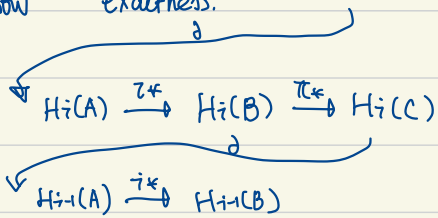 exactness.
∂
Hi(A) i* → Hi(B) π* → Hi(C)
∂
Hi-1(A) i* → Hi-1(B)